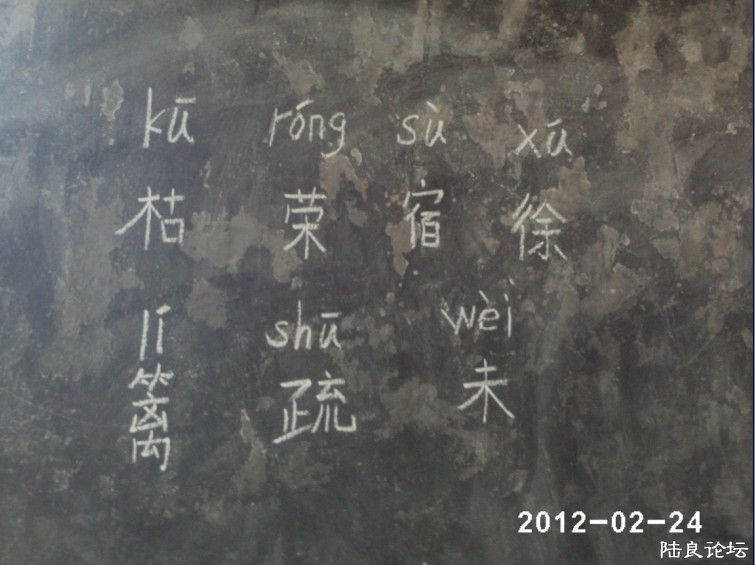 kū róng sù xú
枯 荣 宿 徐
lí shū wèi
篱 疏 未
2012-02-24
陆良论坛